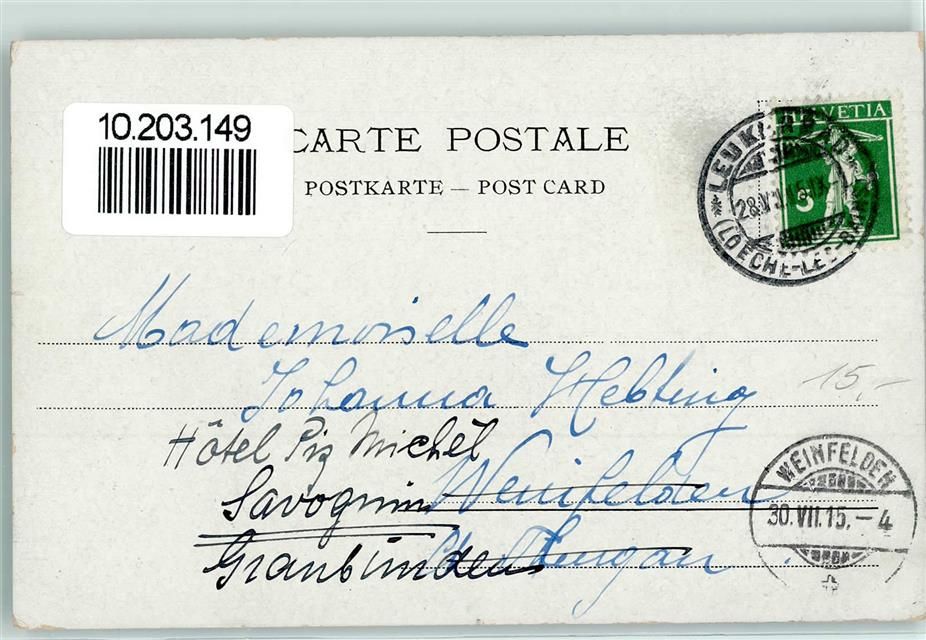 10.203.149
CARTE POSTALE
POSTKARTE – POST CARD
HELVETIA
5
LEUKERBAD
28.VII.15
(LOECHE-LES-BAINS)
Mademoiselle
Johanna Hebting
15,-
Hôtel Piz Michèl
Weinfelden
Savognin
Thurgau
Graubünden
WEINFELDEN
30.VII.15.–4